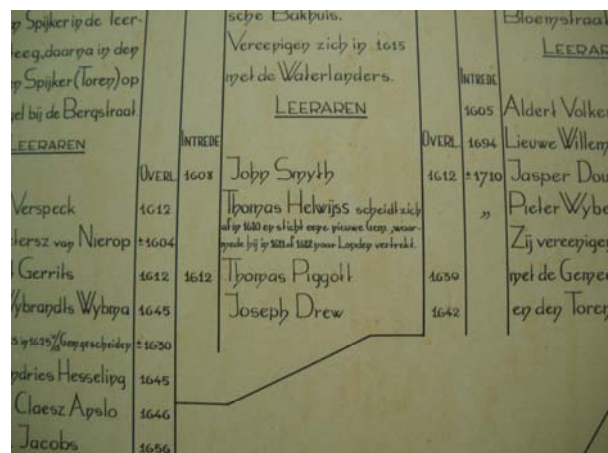 Spijker in de leer-
eeg, daarna in den
Spijker (Toren) op
el bij de Bergstraat.
LEERAREN
OVERL.
Verspeck 1612
ersz van Nierop ±1604
Gerrits 1612
Wybrandts Wybma 1645
in 1625 v/d Gem gescheiden ±1630
ndries Hesseling 1645
Claesz Apslo 1646
Jacobs 1656
sche Bakhuis.
Vereenigen zich in 1615
met de Waterlanders.
LEERAREN
INTREDE OVERL.
1608 John Smyth 1612
Thomas Helwijss scheidt zich
af in 1610 en sticht eene nieuwe Gem., waar-
mede hij in 1611 of 1612 naar Londen vertrekt.
1612 Thomas Piggott 1639
Joseph Drew 1642
Bloemstraat
LEERAR
INTREDE
1605 Aldert Volker
1694 Lieuwe Willem
±1710 Jasper Dou
" Pieter Wybe
Zij vereenigen
met de Gemee
en den Toren